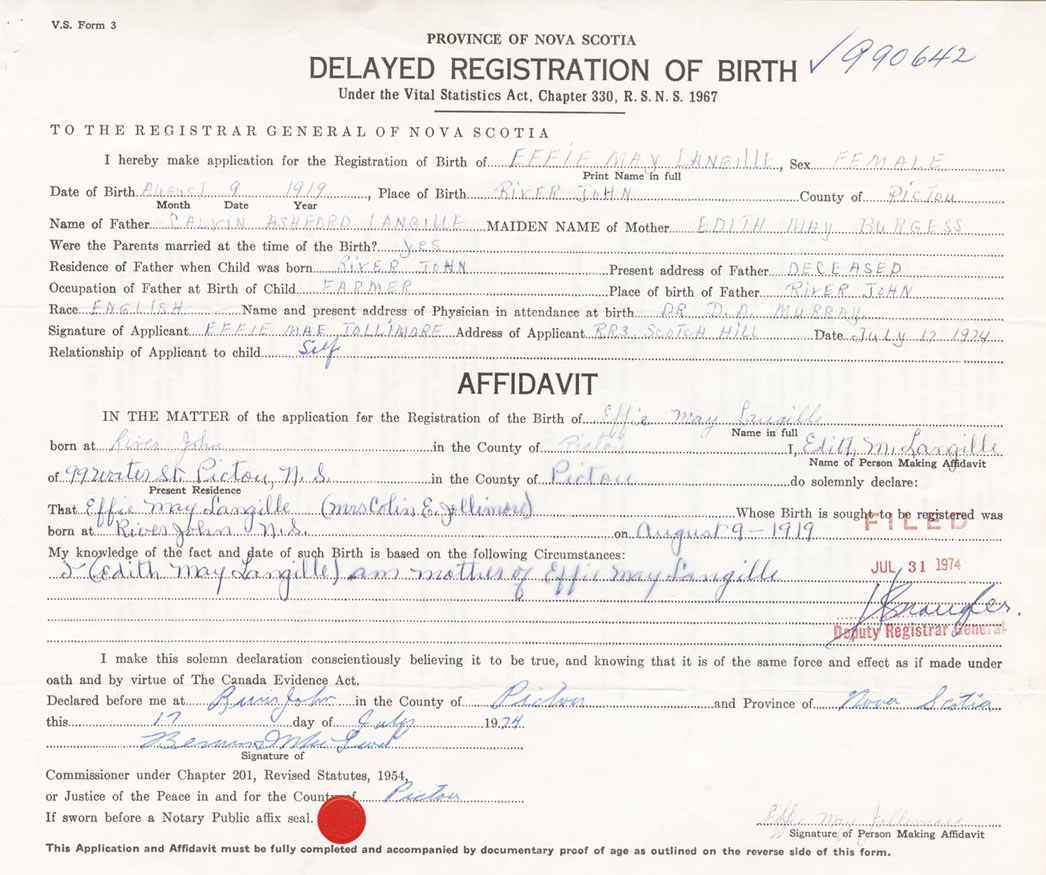 V.S. Form 3
PROVINCE OF NOVA SCOTIA
DELAYED REGISTRATION OF BIRTH ✓990642
Under the Vital Statistics Act, Chapter 330, R.S.N.S. 1967
TO THE REGISTRAR GENERAL OF NOVA SCOTIA
I hereby make application for the Registration of Birth of EFFIE MAY LANGILLE, Sex FEMALE
Print Name in full
Date of Birth AUGUST 9 1919, Place of Birth RIVER JOHN County of PICTOU
Month Date Year
Name of Father CALVIN ASHFORD LANGILLE MAIDEN NAME of Mother EDITH MAY BURGESS
Were the Parents married at the time of the Birth? yes
Residence of Father when Child was born RIVER JOHN Present address of Father DECEASED
Occupation of Father at Birth of Child FARMER Place of birth of Father RIVER JOHN
Race ENGLISH Name and present address of Physician in attendance at birth DR D.A. MURRAY
Signature of Applicant EFFIE MAE JOLLIMORE Address of Applicant RR3 SCOTCH HILL Date July 17 1974
Relationship of Applicant to child Self
AFFIDAVIT
IN THE MATTER of the application for the Registration of the Birth of Effie May Langille
Name in full
born at River John in the County of Pictou I, Edith M. Langille
Name of Person Making Affidavit
of 99 water St. Pictou, N.S. in the County of Pictou do solemnly declare:
Present Residence
That Effie May Langille (Mrs Colin E. Jollimore) Whose Birth is sought to be registered was
born at River John N.S. on August 9-1919
FILED
My knowledge of the fact and date of such Birth is based on the following Circumstances:
I (Edith May Langille) am mother of Effie May Langille
JUL 31 1974
Deputy Registrar General
I make this solemn declaration conscientiously believing it to be true, and knowing that it is of the same force and effect as if made under
oath and by virtue of The Canada Evidence Act.
Declared before me at River John in the County of Pictou and Province of Nova Scotia
this 17 day of July 1974
Signature of
Commissioner under Chapter 201, Revised Statutes, 1954,
or Justice of the Peace in and for the County of Pictou
If sworn before a Notary Public affix seal.
Effie May Jollimore
Signature of Person Making Affidavit
This Application and Affidavit must be fully completed and accompanied by documentary proof of age as outlined on the reverse side of this form.